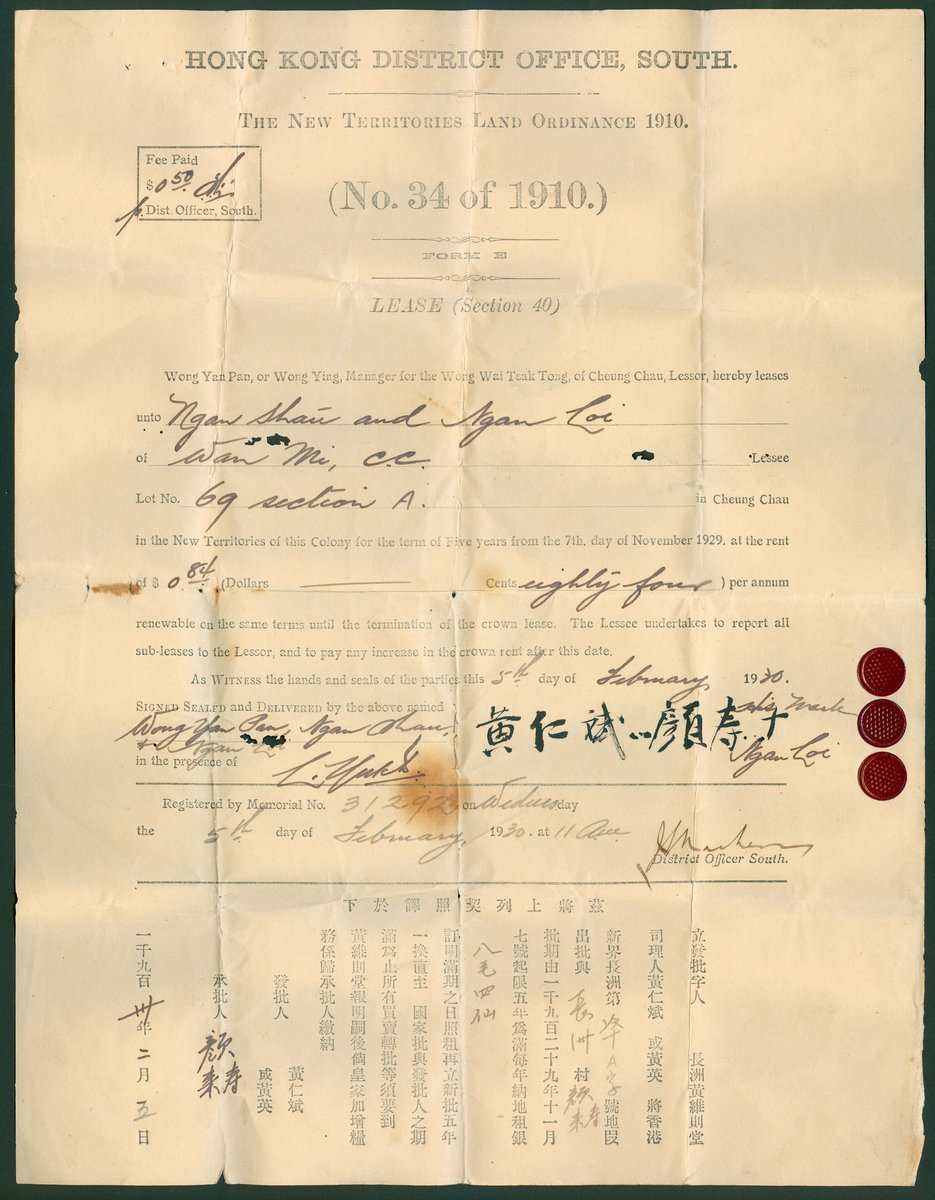 HONG KONG DISTRICT OFFICE, SOUTH.
THE NEW TERRITORIES LAND ORDINANCE 1910.
Fee Paid
$ 0.50
p. Dist. Officer, South.
(No. 34 of 1910.)
FORM E
LEASE (Section 40)
Wong Yan Pan, or Wong Ying, Manager for the Wong Wai Tsak Tong, of Cheung Chau, Lessor, hereby leases
unto Ngan Shau and Ngan Loi
of Wan Mi, C.C. Lessee
Lot No. 69 section A. in Cheung Chau
in the New Territories of this Colony for the term of Five years from the 7th. day of November 1929. at the rent
of $ 0.84 (Dollars Cents eighty four ) per annum
renewable on the same terms until the termination of the crown lease. The Lessee undertakes to report all
sub-leases to the Lessor, and to pay any increase in the crown rent after this date.
AS WITNESS the hands and seals of the parties this 5th day of February, 1930.
SIGNED SEALED and DELIVERED by the above named
Wong Yan Pan, Ngan Shau,
+ Ngan Loi
黃仁斌 顏壽 十
His Mark
Ngan Loi
in the presence of
Registered by Memorial No. 31292 on Wednesday
the 5th day of February, 1930. at 11 Am
District Officer South.
茲將上列契照譯於下
立發批字人 長洲黃維則堂
司理人黃仁斌 或黃英 將香港
新界長洲第 A字 號地段
出批與 長洲 村 顏壽來
批期由一千九百二十九年十一月
七號起限五年爲滿每年納地租銀
八毛四仙
訂明滿期之日照租再立新批五年
一換值至 國家批與發批人之期
滿爲止所有買賣轉批等須要到
黃維則堂報明嗣後倘皇家加增糧
務係歸承批人繳納
發批人 黃仁斌
或黃英
承批人 顏壽來
一千九百卅年二月五日